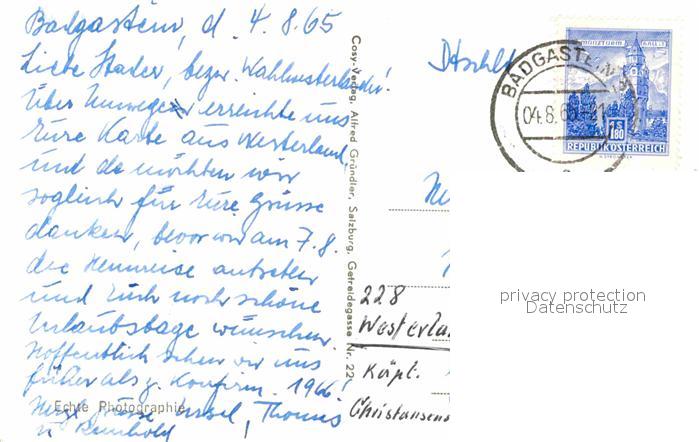 Badgastein, d. 4.8.65
Liebe Stader, bezw. Wahlwesterländer!
Über Umwegen erreichte uns
Eure Karte aus Westerland,
und da möchten wir
sogleich für Eure Grüsse
danken, bevor wir am 7.8.
die Heimreise antreten
und Euch noch schöne
Urlaubstage wünschen.
Hoffentlich sehen wir uns
früher als z. Konfirm. 1966!
Herzl. Grüsse Ursel, Thomas
u. Reinhold
Echte Photographie
Cosy-Verlag, Alfred Gründler, Salzburg, Getreidegasse Nr. 22
Dtschld
BADGASTEIN
04.8.65
MÜNZTURM HALL
S 1.80
REPUBLIK ÖSTERREICH
228
Westerla
Käpt.
Christansens
privacy protection
Datenschutz